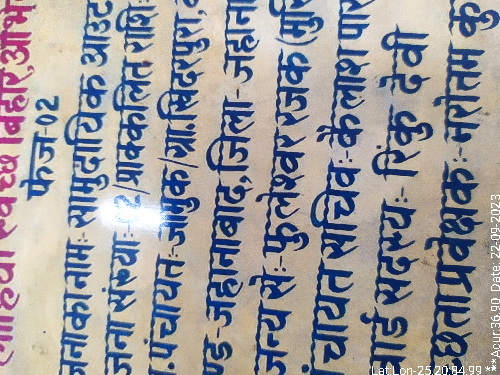 लोहिया स्वच्छ बिहार अभि
फेज-02
जना का नाम:- सामुदायिक आउट
जना संख्या:- /प्राक्कलित राशि:
.पंचायत:- जामुक/ग्रा.सिदरपुरा,
ण्ड-जहानाबाद,जिला-जहाना
जन्य से:-फुलेश्वर रजक (मुखि
चायत सचिव:-कैलाश पास
वार्ड सदस्य:- रिंकु देवी
च्छता प्रवेक्षक:-नरोतम कु
Lat Lon-25.20,84.99 ***Acur:36.90 Date: 22-09-2023